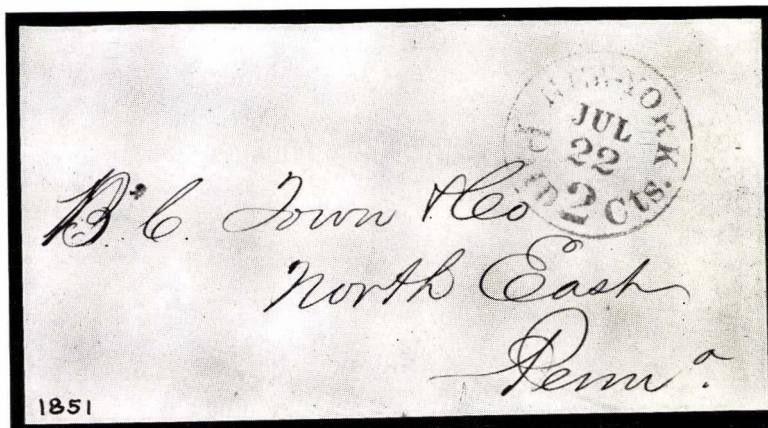 NEW-YORK
JUL
22
PAID 2 Cts.
B. C. Town & Co
North East
Penn a.
1851